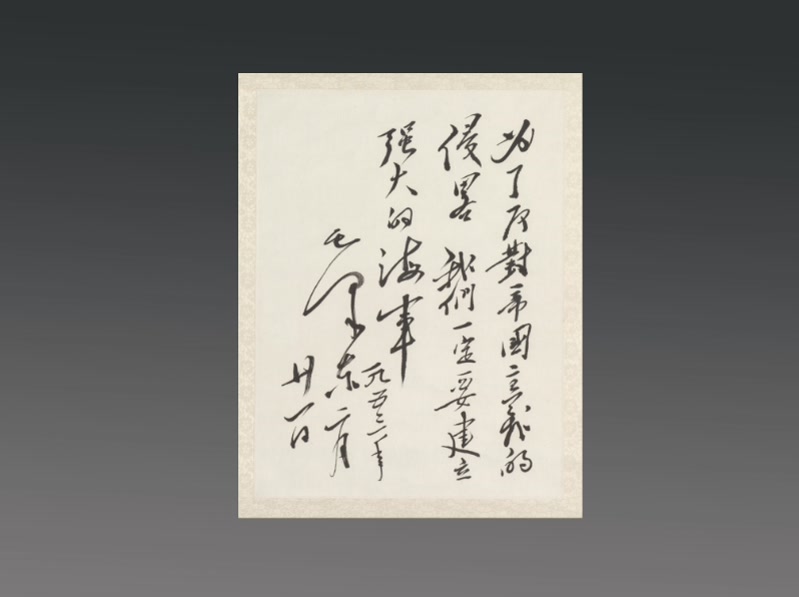 为了反對帝國主義的
侵畧 我們一定要建立
强大的海軍
毛澤东
一九五三年
二月
廿一日